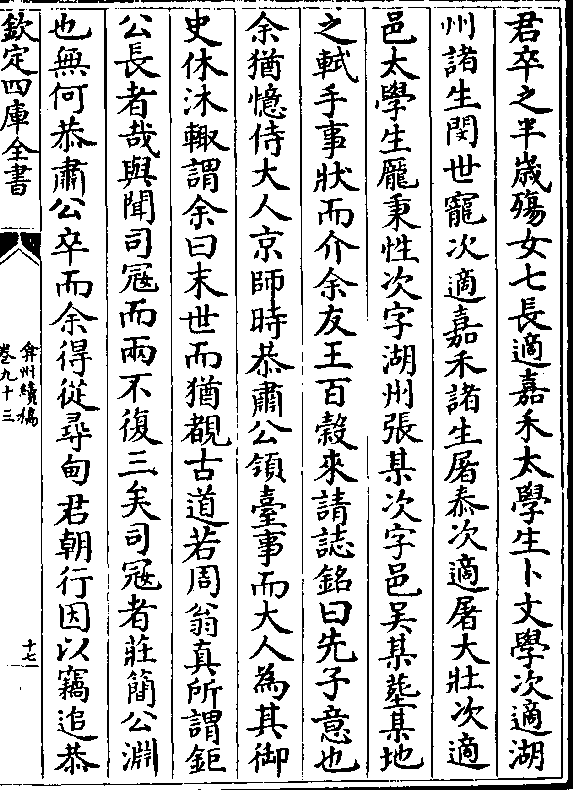 君卒之半歲殤女七長適嘉禾太學生卜文學次適湖
州諸生閔世寵次適嘉禾諸生屠泰次適屠大壯次適
邑太學生龎秉性次字湖州張某次字邑吴某塟某地
之軾手事狀而介余友王百榖來請誌銘曰先子意也
余猶憶侍大人京師時恭肅公領臺事而大人為其御
史休沐輙謂余曰末世而猶覩古道若周翁真所謂鉅
公長者哉與聞司冦而兩不復三矣司冦者莊簡公淵
也無何恭肅公卒而余得從尋甸君朝行因以竊追恭
欽定四庫全書
弇州續稿
卷九十三
十七